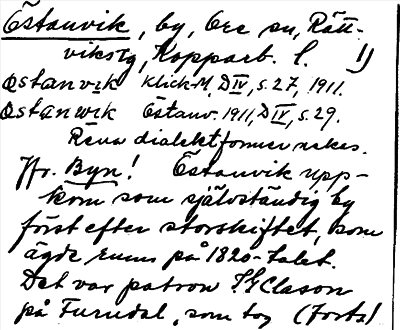 Östanvik, by, Ore sn, Rätt-
vikstg, Kopparb. l. 1)
Östanvik Klick-M, DIV, s. 27, 1911.
Östanvik Östanv. 1911, DIV, s. 29.
Rena dialektformer saknas.
Jfr. Byn! Östanvik upp-
kom som självständig by
först efter storskiftet, som
ägde rum på 1820-talet.
Det var patron Clason
på Furudal, som tog (Forts)